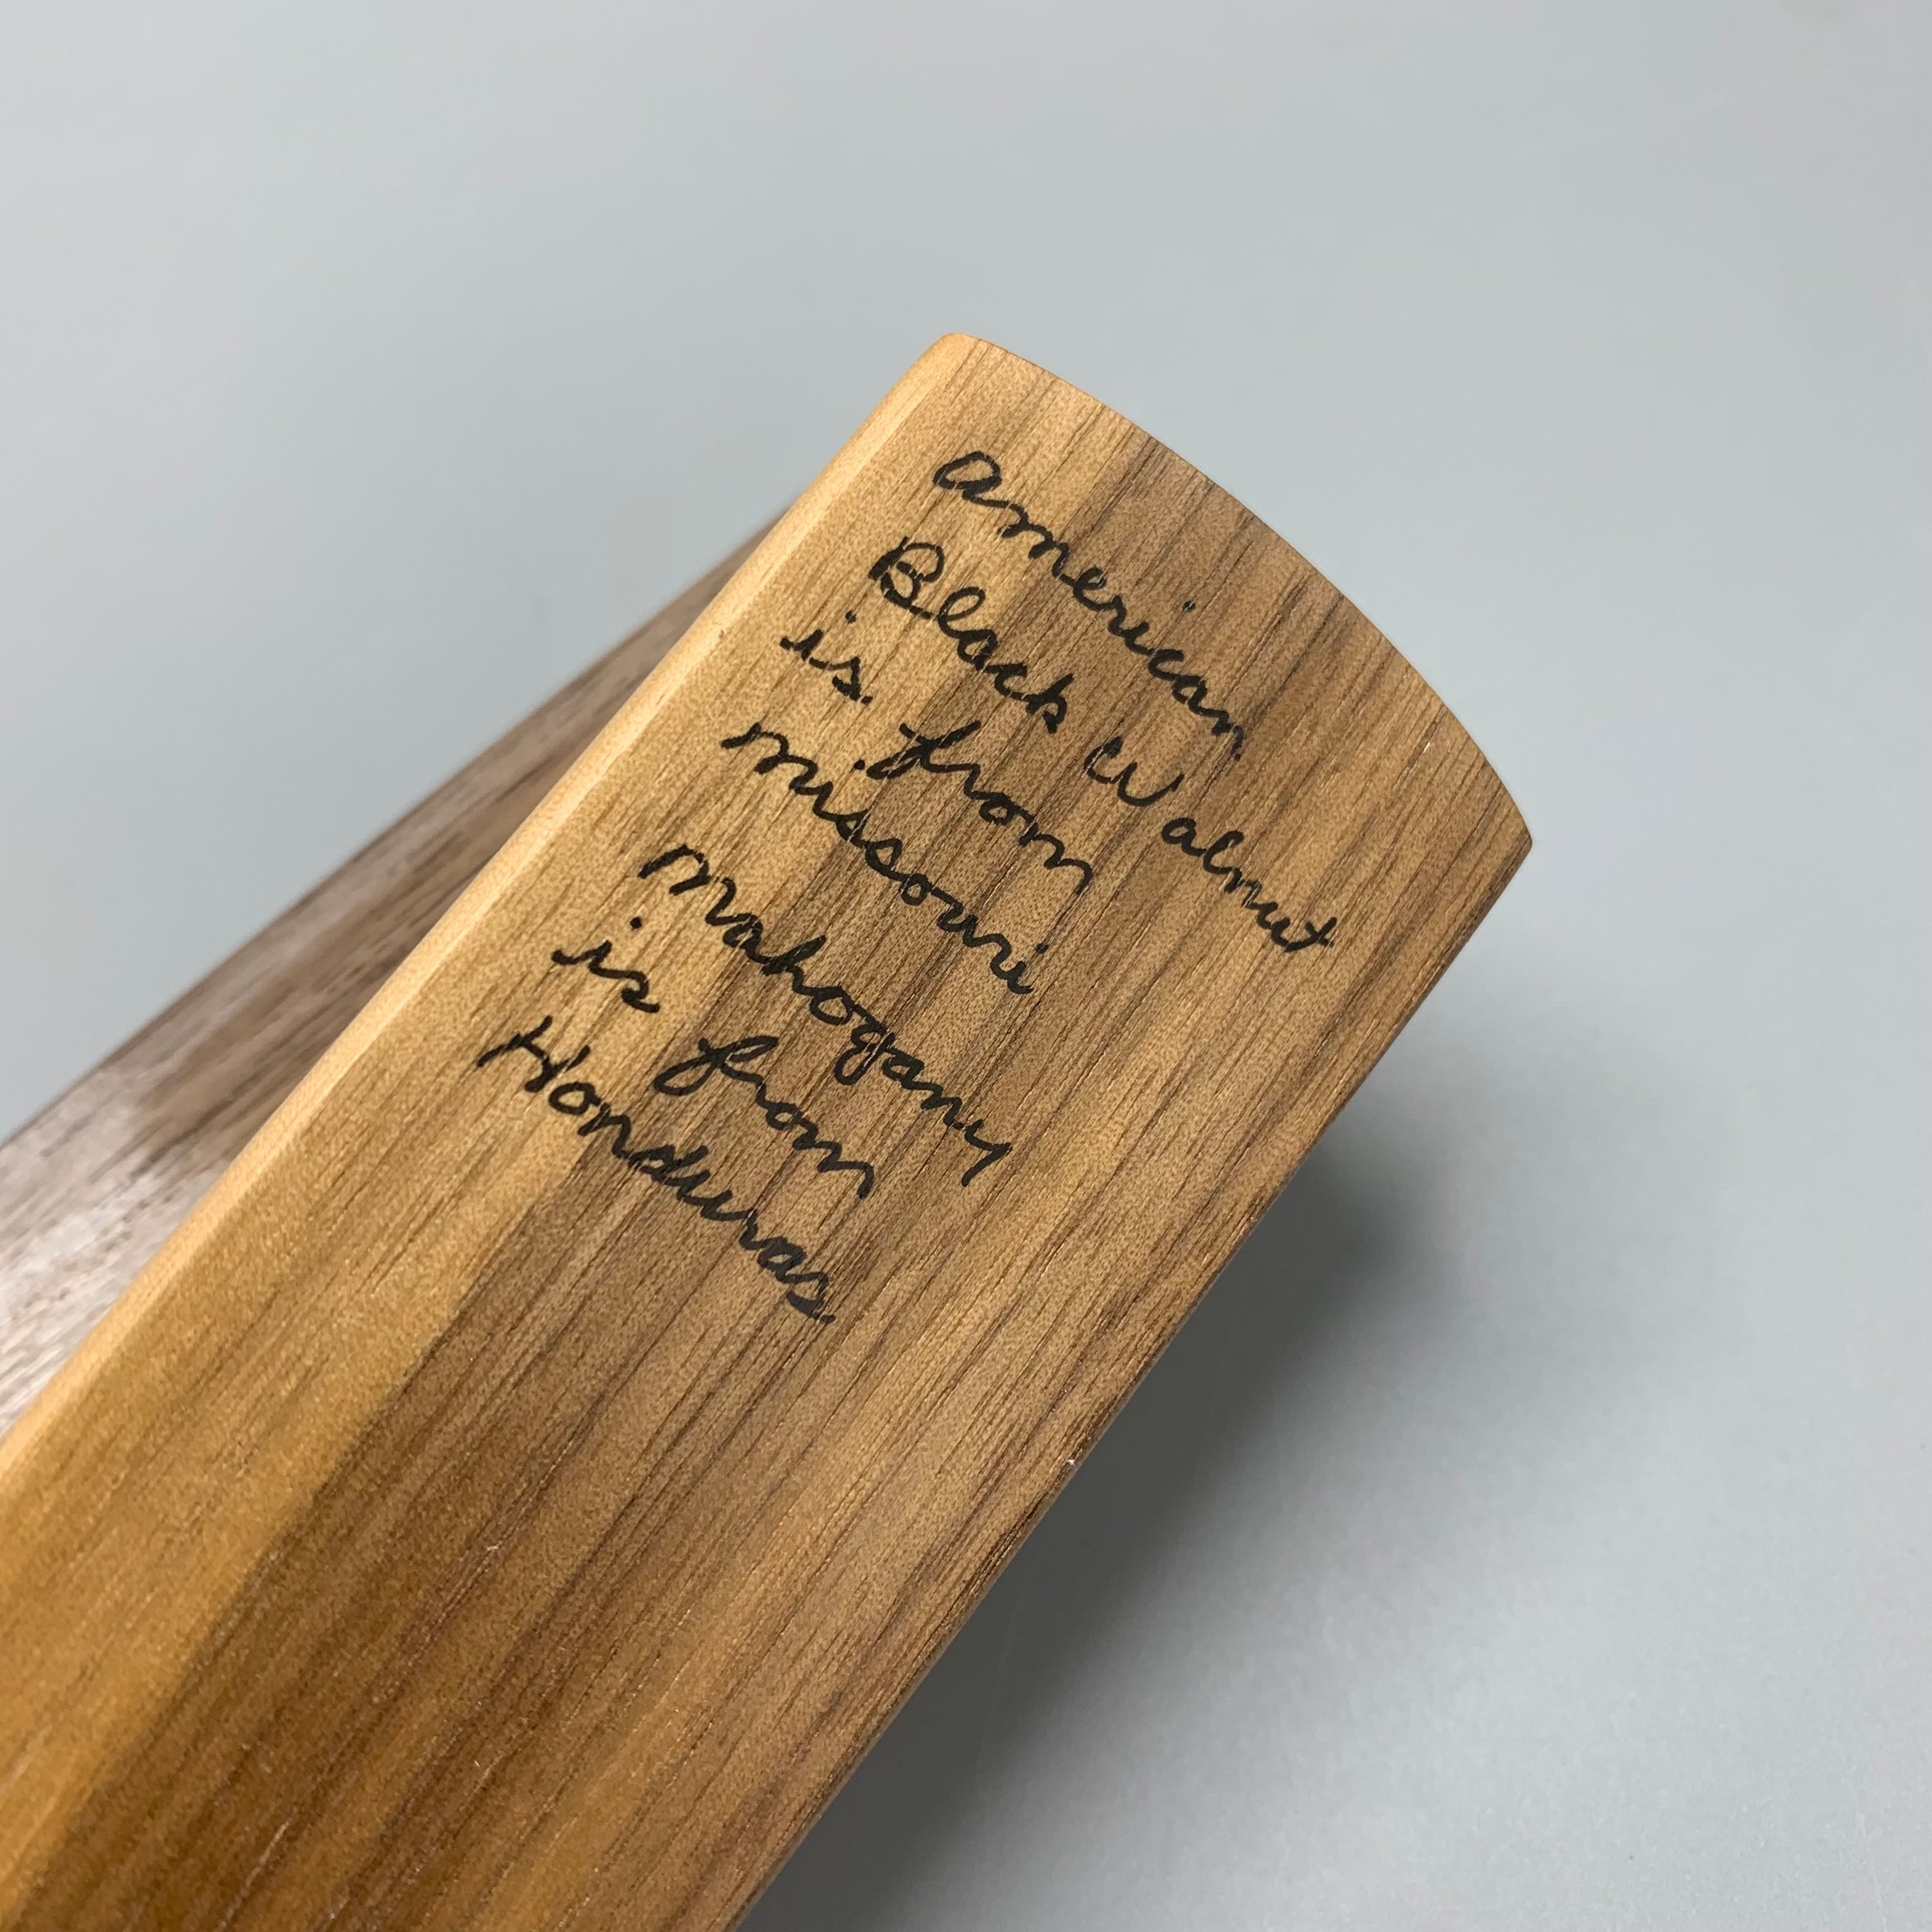 american
Black Walnut
is from
missouri
mahogany
is from
Honduras.